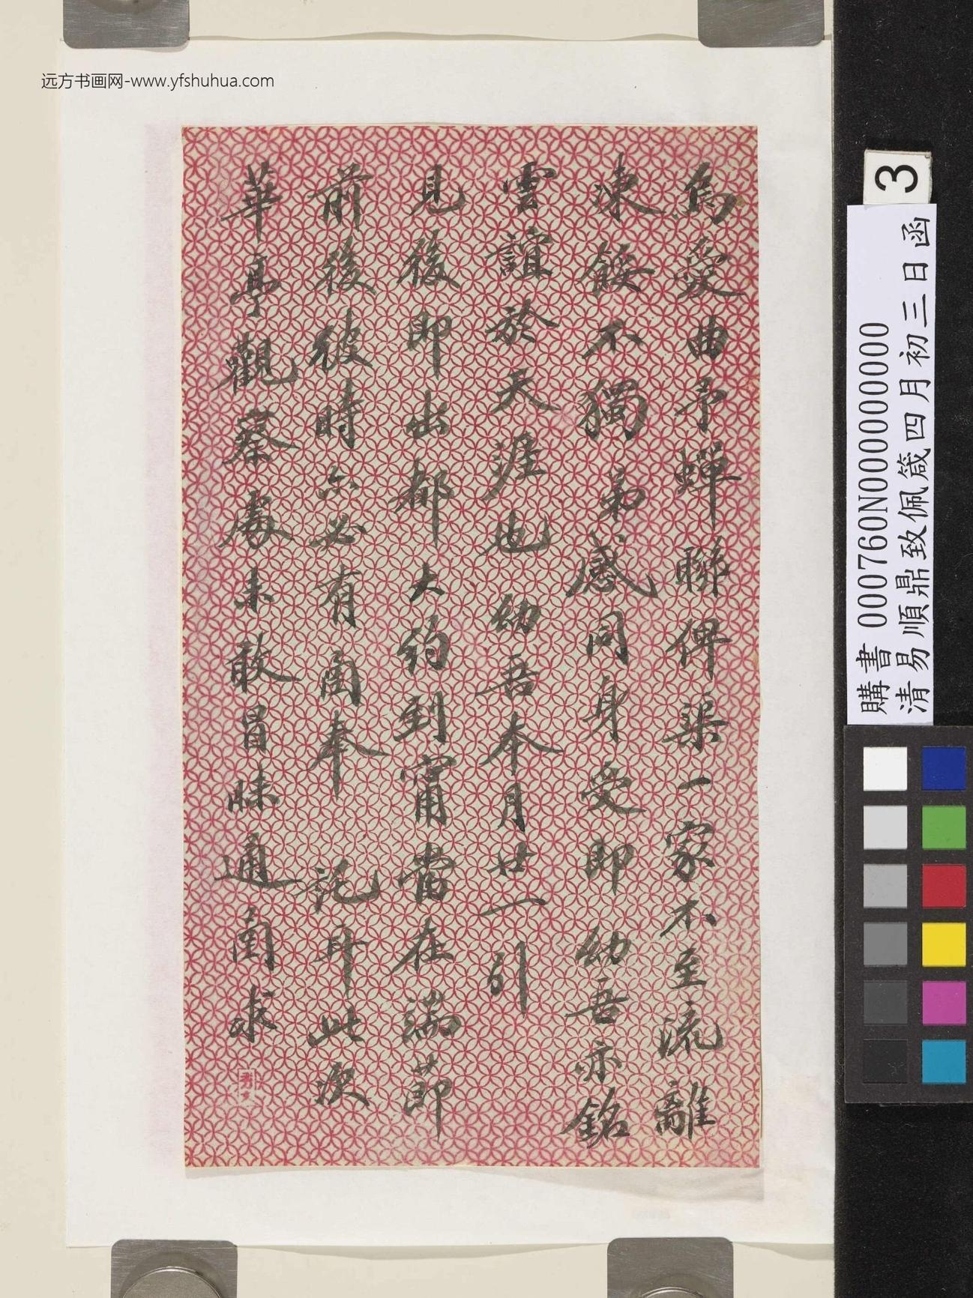 远方书画网-www.yfshuhua.com
為愛曲予蟬聯俾渠一家不至流離
凍餒不獨弟感同身受即幼吾亦銘
雲誼於天涯也幼吾本月廿一引
見後即出都大約到甯當在端節
前後彼時亦必有函奉託斗此次
華亭觀察處未敢冒昧通函求
3
購書 000760N000000000
清易順鼎致佩箴四月初三日函